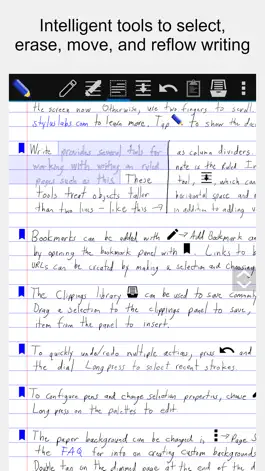 Intelligent tools to select,
erase, move, and reflow writing
the screen now. Otherwise, use two fingers to scroll.
styluslabs.com to learn more. Tap to show the
Write provides several tools for
working with writing on ruled
pages such as this. These
tools treat objects taller
than two lines - like this →
as column dividers.
note is the Ruled
tool, , which can
horizontal space and
in addition to adding
Bookmarks can be added with → Add Bookmark
by opening the bookmark panel with . Links to
URLs can be created by making a selection and choosing
The Clippings library can be used to save
Drag a selection to the clippings panel to save,
item from the panel to insert.
To quickly undo/redo multiple actions, press and
the dial. Long press to select recent strokes.
To configure pens and change selection properties, choose
Long press on the palettes to edit.
The paper background can be changed → Page
the FAQ for info on creating custom backgrounds
Double tap on the dimmed page at the end of the